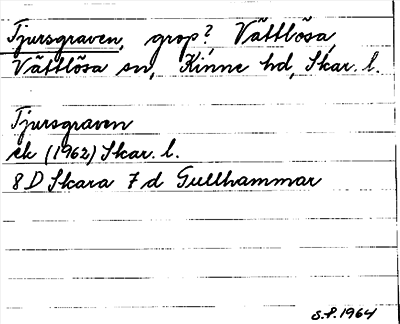 Tjursgraven, grop?, Vättlösa,
Vättlösa sn, Kinne hd, Skar. l.
Tjursgraven
ek (1962) Skar. l.
8 D Skara 7 d Gullhammar
S.P. 1964